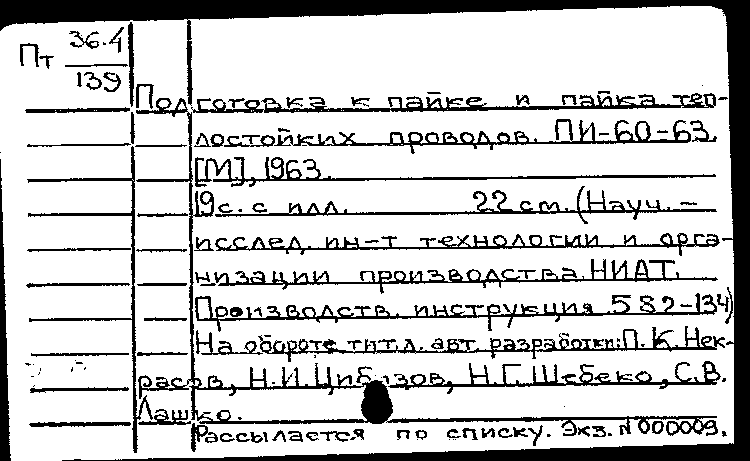 Пт 36.4
139
Подготовка к пайке и пайка теп-
лостойких проводов. ПИ-60-63.
[М], 1963.
19с. с илл. 22 см. (Науч.-
исслед. ин-т технологии и орга-
низации производства НИАТ.
Производств. инструкция 582-134)
На обороте тит.л. авт. разработки: П.К. Нек-
расов, Н.И. Цибизов, Н.Г. Шебеко, С.В.
Лашко.
Рассылается по списку. Экз. N 000009.